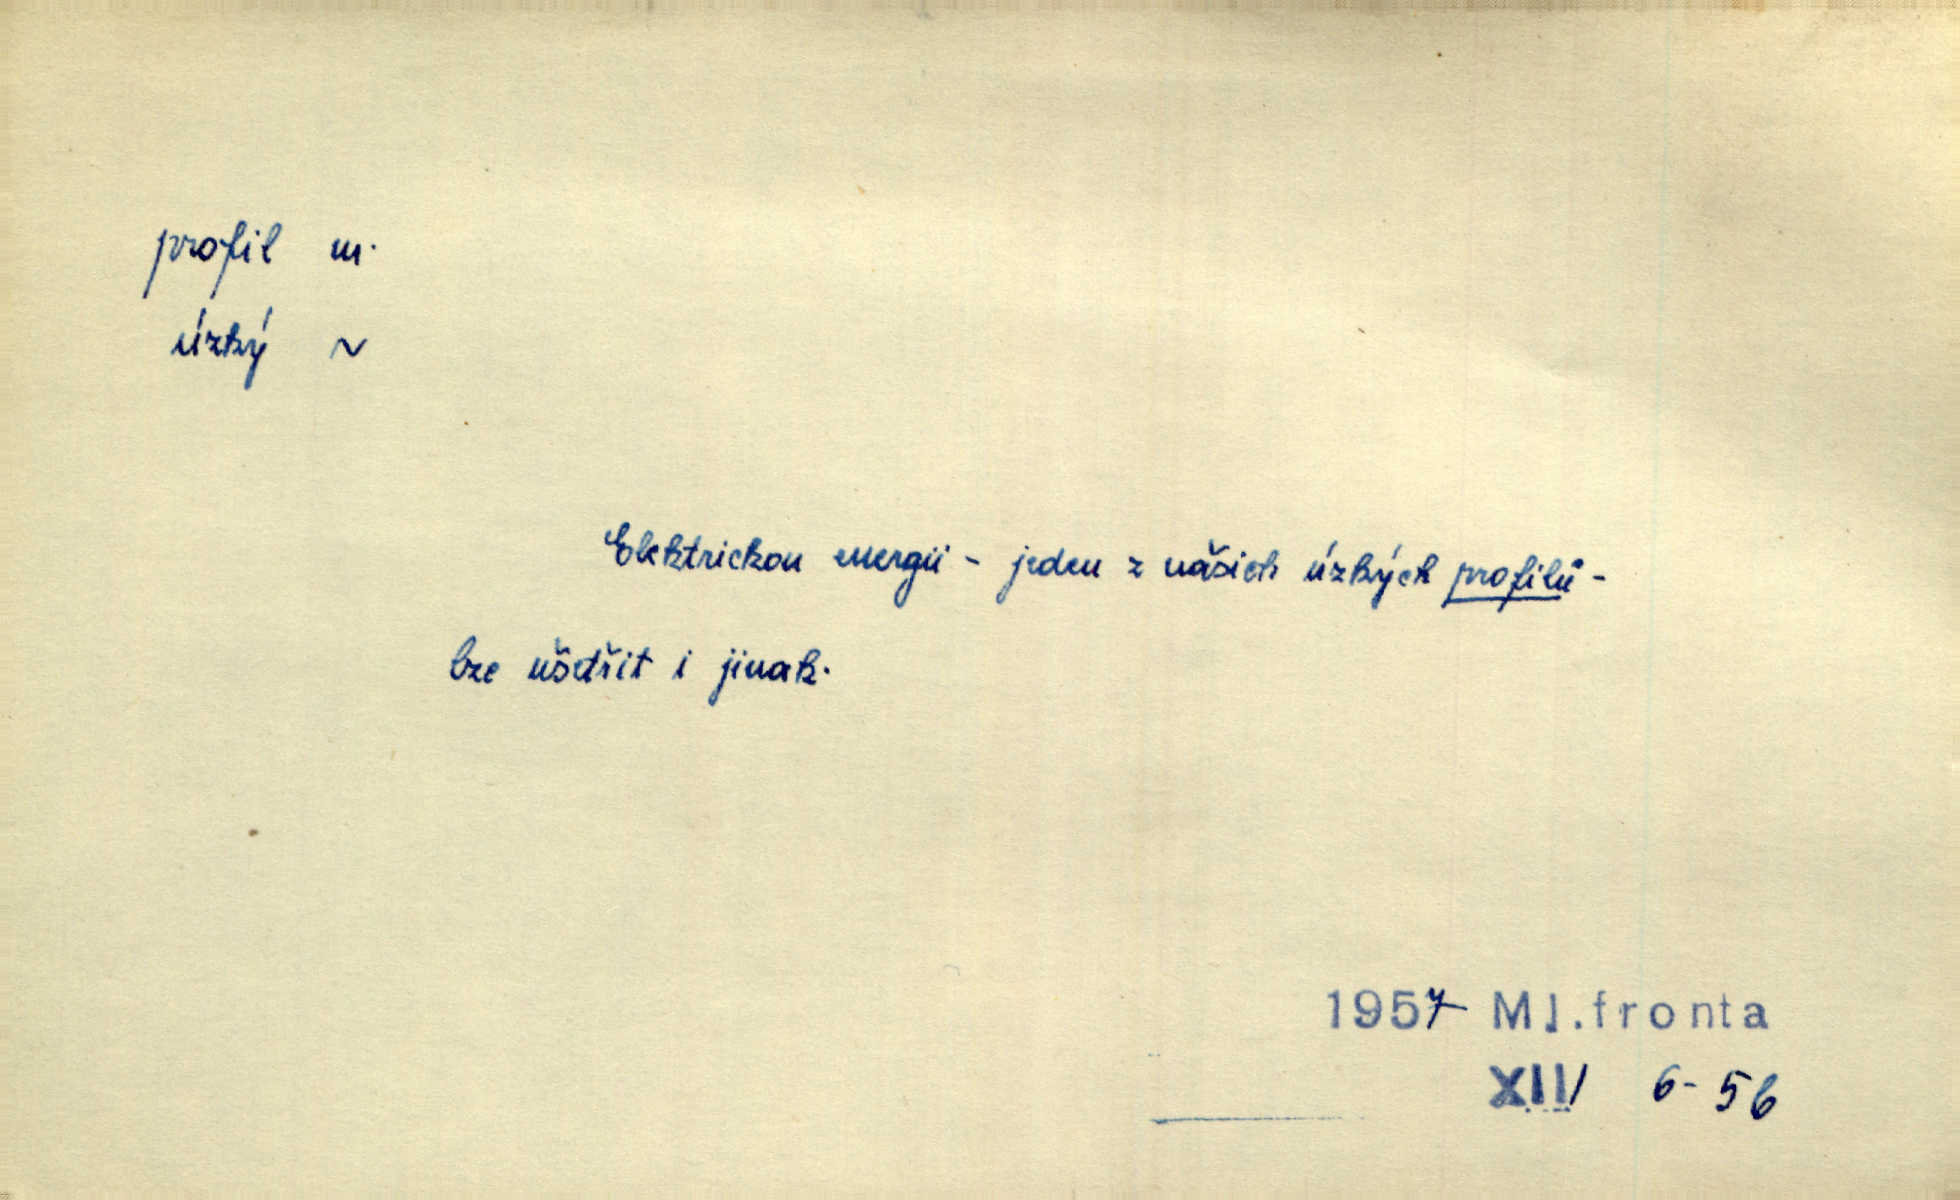 profil m.
úzký ~
Elektrickou energii - jeden z našich úzkých profilů -
lze ušetřit i jinak.
1957 Ml.fronta
XIII 6-5b